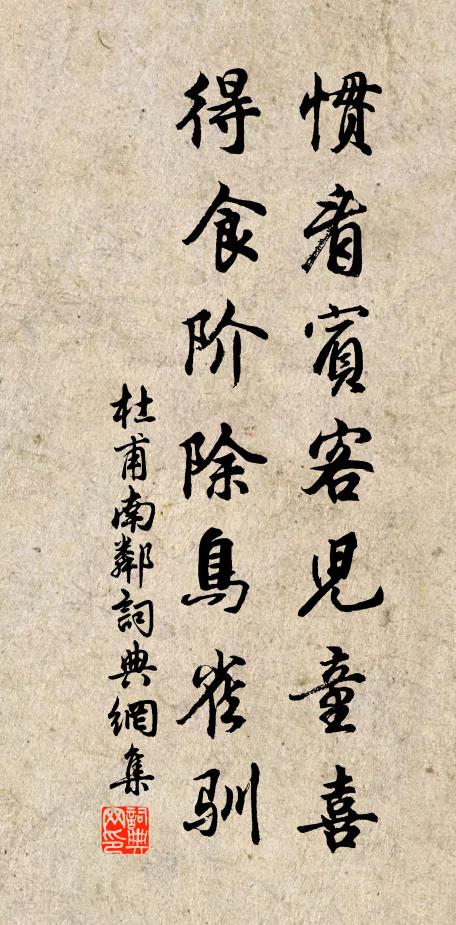 慣看賓客兒童喜
得食阶除鳥雀馴
杜甫南鄰詞典網集
詞典
网印